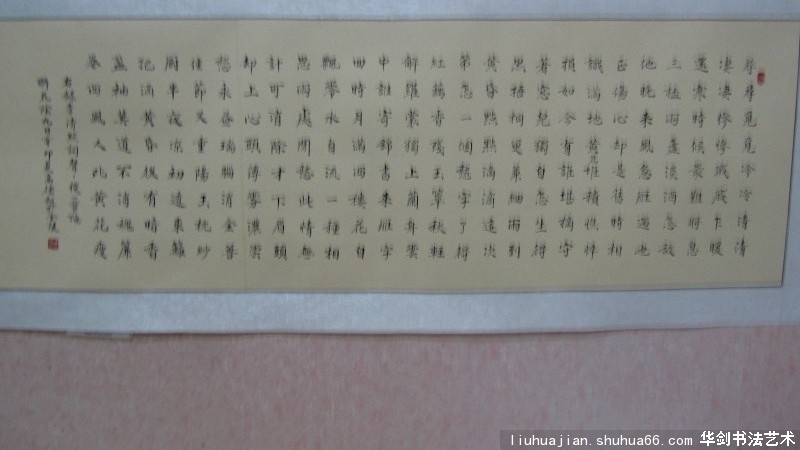 尋尋覓覓冷冷清清
淒淒慘慘戚戚乍暖
還寒時候最難將息
三杯兩盞淡酒怎敵
他晚來風急雁過也
正傷心却是舊時相
識滿地黃花堆積憔悴
損如今有誰堪摘守
著窗兒獨自怎生得
黑梧桐更兼細雨到
黃昏點點滴滴這次
第怎一個愁字了得
紅藕香殘玉簟秋輕
解羅裳獨上蘭舟雲
中誰寄錦書來雁字
回時月滿西樓花自
飄零水自流一種相
思兩處閒愁此情無
計可消除才下眉頭
却上心頭薄霧濃雲
愁永晝瑞腦消金獸
佳節又重陽玉枕紗
廚半夜涼初透東籬
把酒黃昏後有暗香
盈袖莫道不消魂簾
卷西風人比黃花瘦
右錄李清照詞
liuhuajian.shuhua66.com 华剑书法艺术